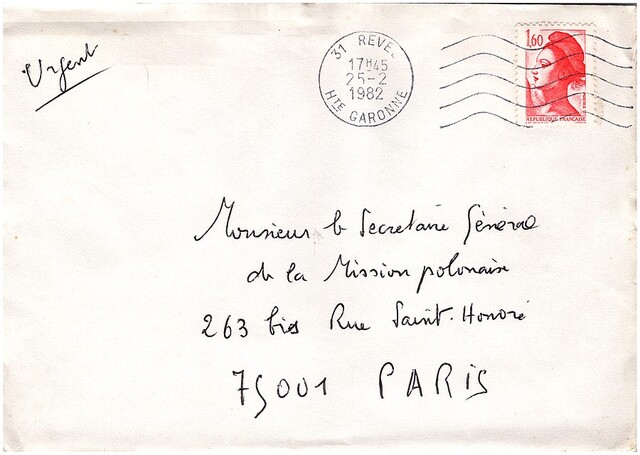 Urgent
31 REVEL
17H45
25-2
1982
HTE GARONNE
1,60
REPUBLIQUE FRANCAISE
Monsieur le Secretaire Général
de la Mission polonaise
263 bis Rue Saint-Honoré
75001 PARIS